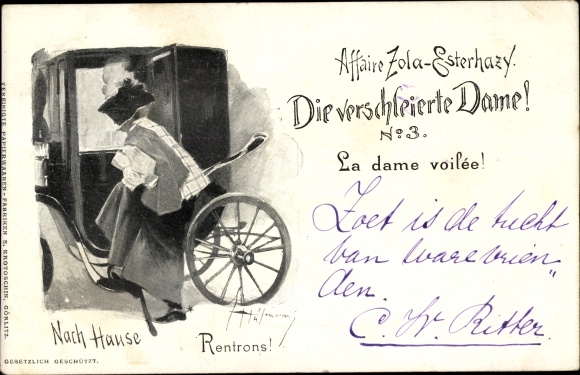 Affaire Zola-Esterhazy.
Die verschleierte Dame!
No 3.
La dame voilée!
Zoet is de tucht
van ware vrien„
den.
C. W. Ritter.
Nach Hause
Rentrons!
GESETZLICH GESCHÜTZT.
VEREINIGTE PAPIERWAAREN-FABRIKEN S. KROTOSCHIN, GÖRLITZ.